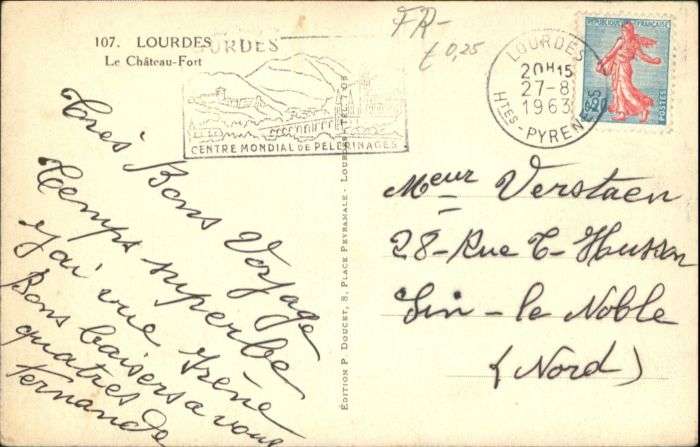 107. LOURDES
Le Château-Fort
LOURDES
CENTRE MONDIAL DE PÈLERINAGES
FR-
£0,25
LOURDES
20H15
27-8
1963
Htes-PYRENEES
REPUBLIQUE FRANÇAISE
0,20
POSTES
Très Bons Voyage
temps superbe
J'ai vue Irène
Bons baisers a vous
quatres de
Fernande
EDITION P. DOUCET, 8, PLACE PEYRAMALE - LOURDES - TÉL. 7-08
Meur Verstaen
28-Rue C-Husson
Sin-le Noble
(Nord)